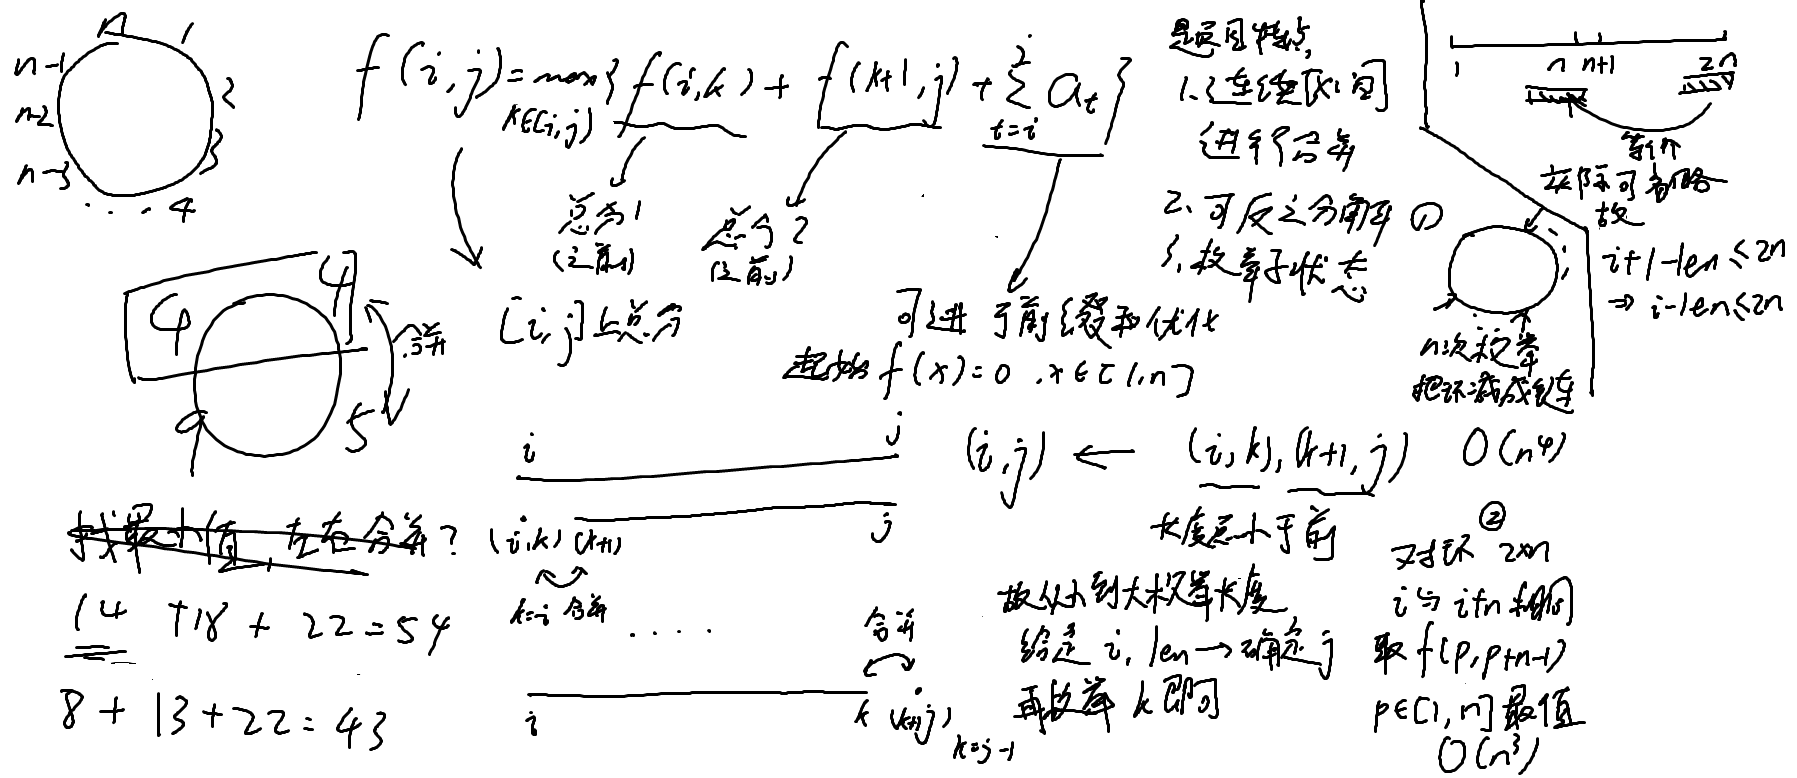 n
1
2
3
4
....
n-3
n-2
n-1
f(i,j)=max{f(i,k)+f(k+1,j)+∑a_t}
k∈[i,j)
t=i
j
总分1
(之前)
总分2
(之前)
[i,j]上总分
可进行前缀和优化
起始f(x)=0,x∈[1,n]
题目特点
1.连续区间
进行合并
2.可反之分解
3.枚举子状态
1
n
n+1
2n
等价
实际可省略
故
i+1-len≤2n
⇒i-len≤2n
①
n次枚举
把环减成链
O(n^4)
4
4
9
5
合并
找最小值,左右合并?
14+18+22=54
8+13+22=43
i
j
(i,k)(k+1)
j
k=i合并
....
合并
i
k
(k+1,j)
k=j-1
(i,j)←(i,k),(k+1,j)
长度总小于前
故从小到大枚举长度
给定i,len→确定j
再枚举k即可
②
对环2×n
i与i+n相同
取f(p,p+n-1)
p∈[1,n]最值
O(n^3)